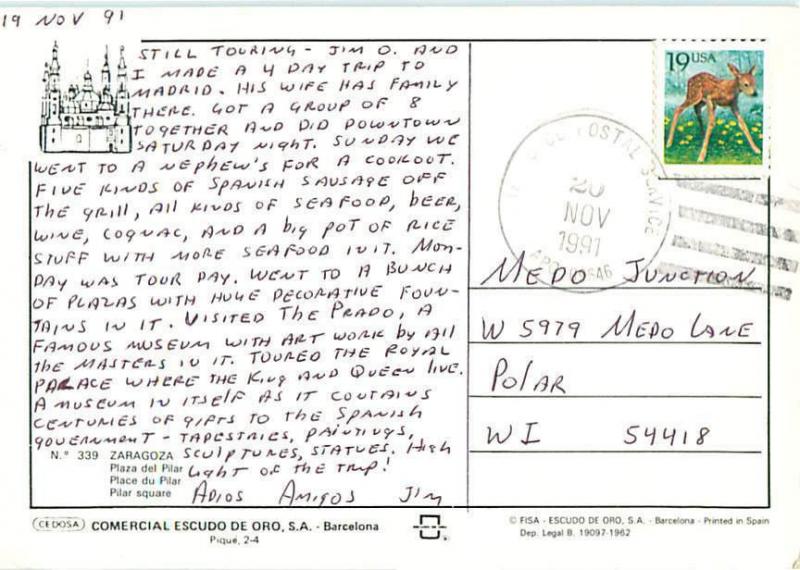 19 NOV 91
STILL TOURING - JIM O. AND
I MADE A 4 DAY TRIP TO
MADRID. HIS WIFE HAS FAMILY
THERE. GOT A GROUP OF 8
TOGETHER AND DID DOWNTOWN
SATURDAY NIGHT. SUNDAY WE
WENT TO A NEPHEW'S FOR A COOKOUT.
FIVE KINDS OF SPANISH SAUSAGE OFF
THE GRILL, ALL KINDS OF SEAFOOD, BEER,
WINE, COGNAC, AND A BIG POT OF RICE
STUFF WITH MORE SEAFOOD IN IT. MON-
DAY WAS TOUR DAY. WENT TO A BUNCH
OF PLAZAS WITH HUGE DECORATIVE FOUN-
TAINS IN IT. VISITED THE PRADO, A
FAMOUS MUSEUM WITH ART WORK BY ALL
THE MASTERS IN IT. TOURED THE ROYAL
PALACE WHERE THE KING AND QUEEN LIVE.
A MUSEUM IN ITSELF AS IT CONTAINS
CENTURIES OF GIFTS TO THE SPANISH
GOVERNMENT - TAPESTRIES, PAINTINGS,
SCULPTURES, STATUES. HIGH
LIGHT OF THE TRIP!
ADIOS AMIGOS JIM
N.° 339 ZARAGOZA
Plaza del Pilar
Place du Pilar
Pilar square
19 USA
POSTAL SERVICE
20
NOV
1991
MEDO JUNCTION
W 5979 MEDO LANE
POLAR
WI 54418
CEDOSA COMERCIAL ESCUDO DE ORO, S.A. - Barcelona
Piqué, 2-4
© FISA - ESCUDO DE ORO, S.A. - Barcelona - Printed in Spain
Dep. Legal B. 19097-1962